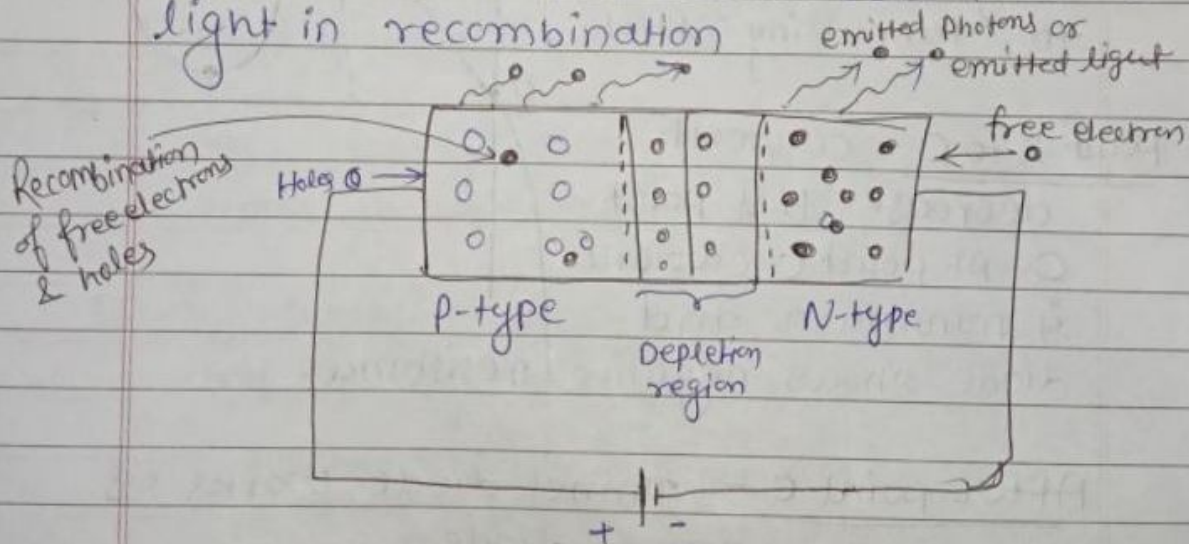 light in recombination
emitted photons or
emitted light
free electron
Recombination
of free electrons
& holes
Holes
P-type
N-type
Depletion
region
+ -